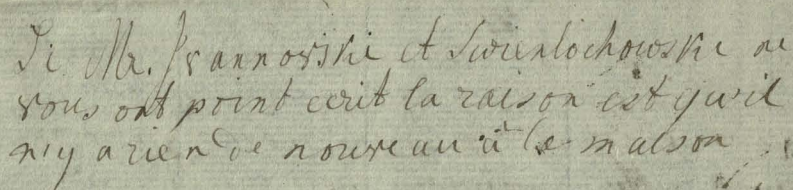 Si Mr. Jvannovski et Swienlochowski ne
vous ont point ecrit la raison est qu'il
n'y a rien de nouveau à la maison